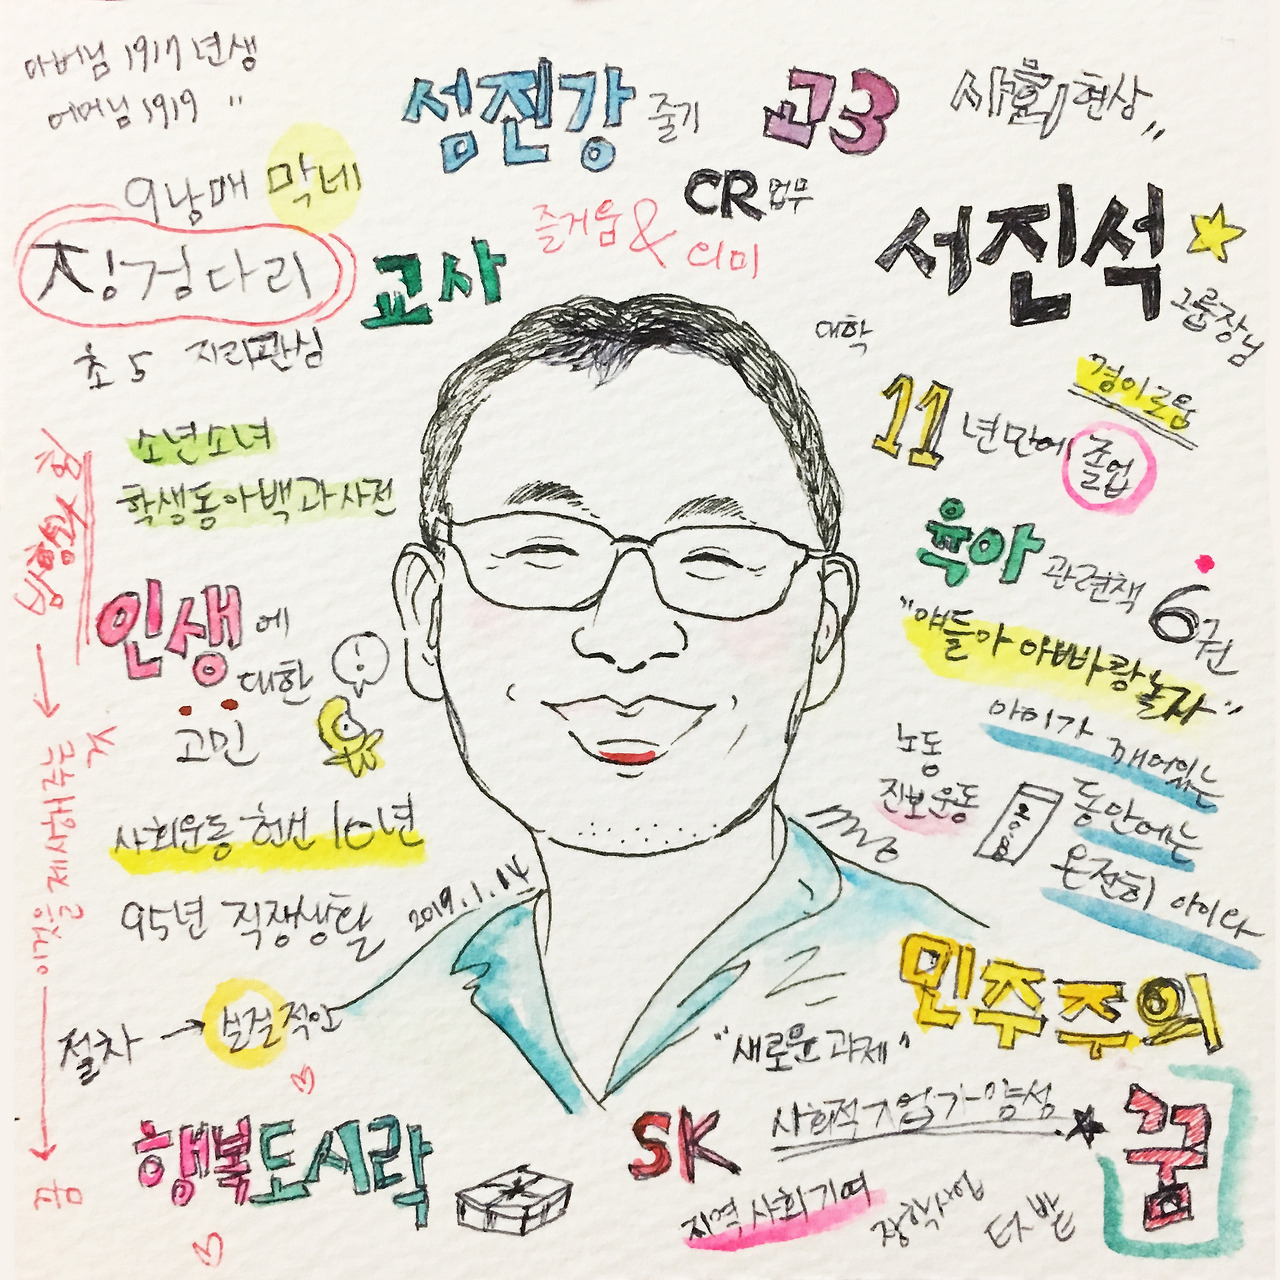 아버님 1917년생
어머님 1919 "
9남매 막네
징검다리
초5 지리관심
소년소녀
학생동아백과사전
인생에
대한
고민
사회운동 헌신 10년
95년 직장생활
2019.1.14
절차 → 본질적인
행복도시락
섬진강 줄기
고3
사회현상"
CR업무
즐거움 & 의미
교사
서진석
그룹장님
대학
11년만에 졸업
경이로움
육아 관련책 6권
"얘들아 아빠랑 놀자"
아이가 깨어있는
동안에는
온전히 아이다
노동
진보운동
민주주의
"새로운 과제"
SK
사회적기업가 양성
꿈
지역사회기여
장학사업
텃밭